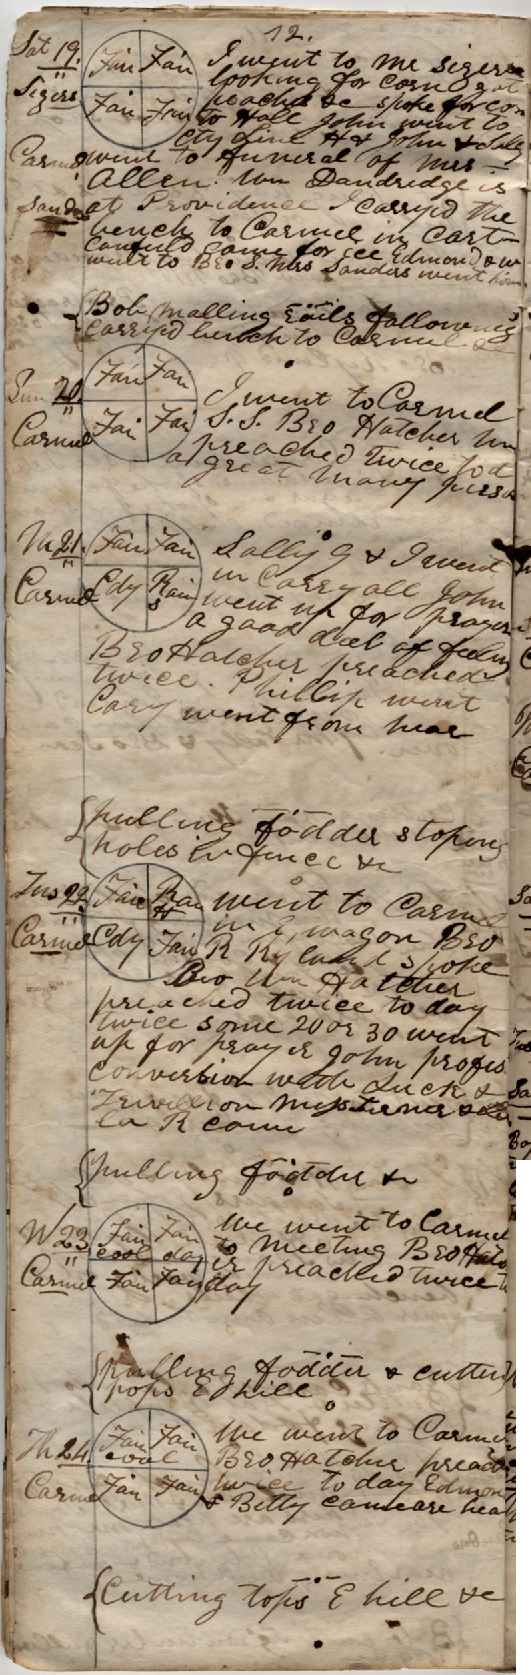 12.
Sat 19. Fair Fair I went to Mr Sizers
looking for corn got
Sizers peaches &c spoke for corn
Fair Fair to Hall John went to
cty line H & John & Sally
Carmel went to funeral of Mrs
Allen. Wm Dandridge is
Sanders at Providence I carryd the
bench to Carmel in cart
came for cee Edmond & w
went to Bro S. Mrs Sanders went home
Bob malling rails following
carryd bench to Carmel &c
Sun 20 Fair Fair
I went to Carmel
Carmel Fair Fai S. S. Bro Hatcher Wm
preached twice tod
a great many perso
M 21. Fair Fair Sally G & I went
in Carryall John
Carmel Cdy Rain went up for prayer
s a good deel of feeling
Bro Hatcher preached
twice. Phillip went
Cary went from hear
pulling fodder stoping
holes in fence &c
Tus 22. Fair Rai went to Carmel
H in E, wagon Bro
Carmel Cdy Fair R Ryland spoke
Bro Wm Hatcher
preached twice to day
twice some 20 or 30 went
up for prayer John profes
convertion with Luck &
Miss Turner &
la R came
pulling fodder &c
W 23. Fair Fair We went to Carmel
cool day to meeting Bro Hatc
Carmel Fair Fair er preached twice to
day
pulling fodder & cutting
tops E hill
Th 24. Fair Fair We went to Carmel
cool Bro Hatcher preach
Carmel Fair Fair twice to day Edmon
& Betty came are hear
Cutting tops E hill &c